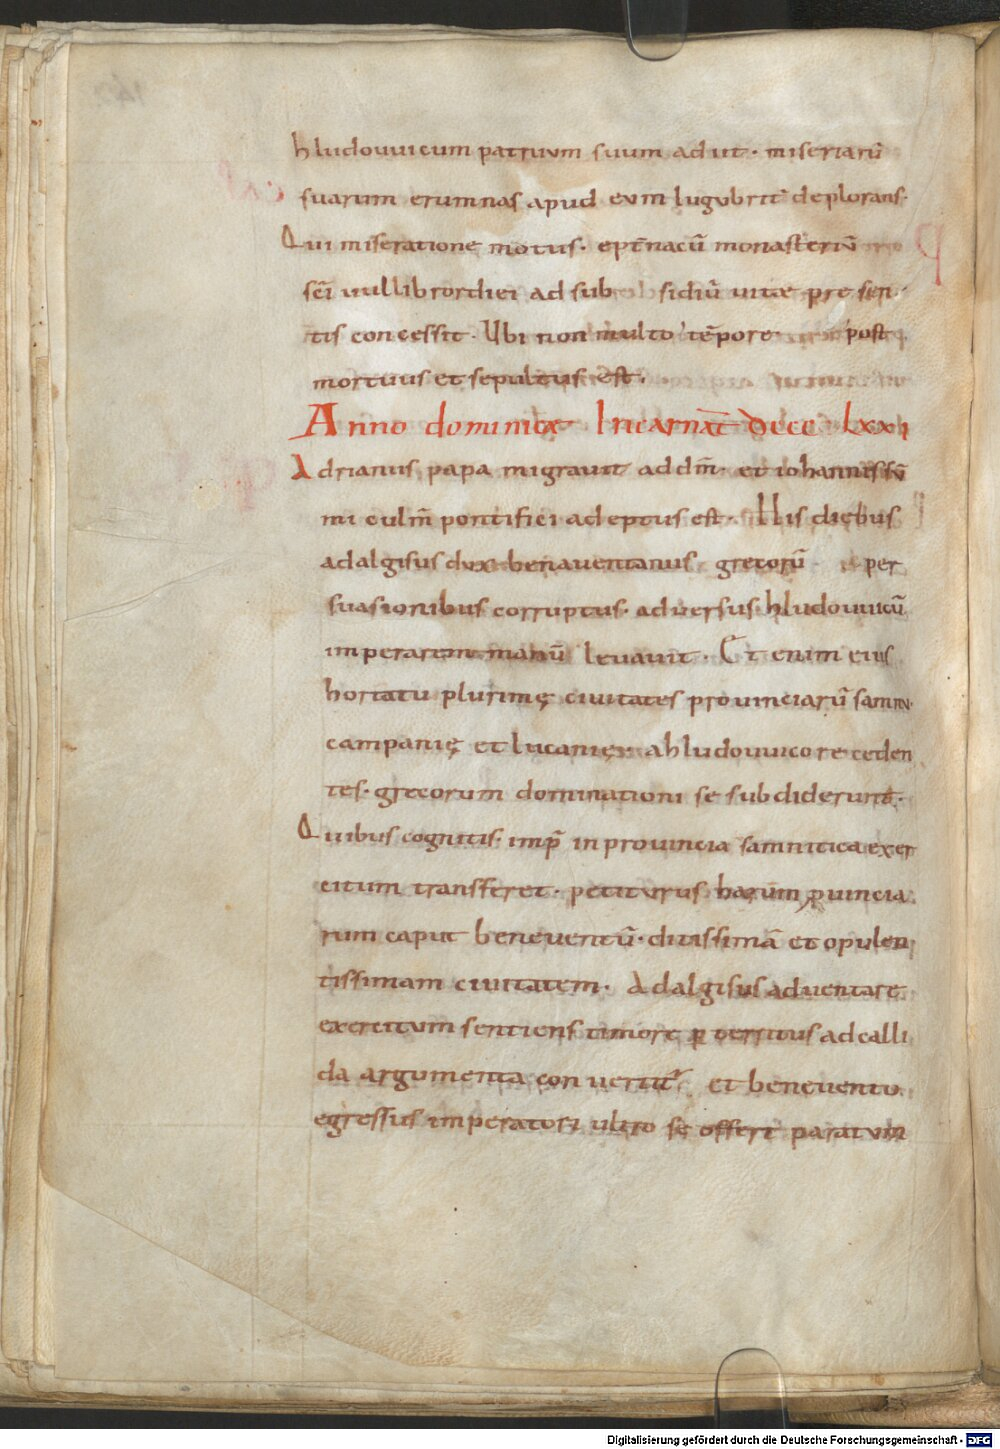 hludouuicum patruum suum adiit · miseriarū
suarum erumnas apud eum lugubrit̄ deplorans·
Qui miseratione motus· ept̄nacū monasteriū
sc̄i uullibrordiei ad sub sidiū uitæ presen·
tis concessit · Ubi non multo tēpore post
mortuus et sepultus est·
Anno dominicæ Incarnat̄ dccc lxxi
Adrianus papa migrauit ad dm̄· et iohannes sū
mi culm̄ pontificii adeptus est· His diebus
adalgisus dux benauentanus grecorū per
suasionibus corruptus· aduersus· hludouuicū
imperarem manū leuauit · Et enim eius
hortatu plurimę ciuitates prouinciarū samnı·
campanię et lucanię· ahludouuico receden
tes· grecorum dominationi se subdiderunt·
Quibus cognitis· imp̄r in prouincia samnitica exer
citum transferet · petiturus harum ꝓuincia
rum caput beneuentū· ditissimā et opulen
tissimam ciuitatem· Adalgisus aduentare
exercitum sentiens timore ꝑterritus ad calli
da argumenta conuertit̄ et beneuento
egressus imperatori ultro se offert paratum
Digitalisierung gefördert durch die Deutsche Forschungsgemeinschaft - DFG